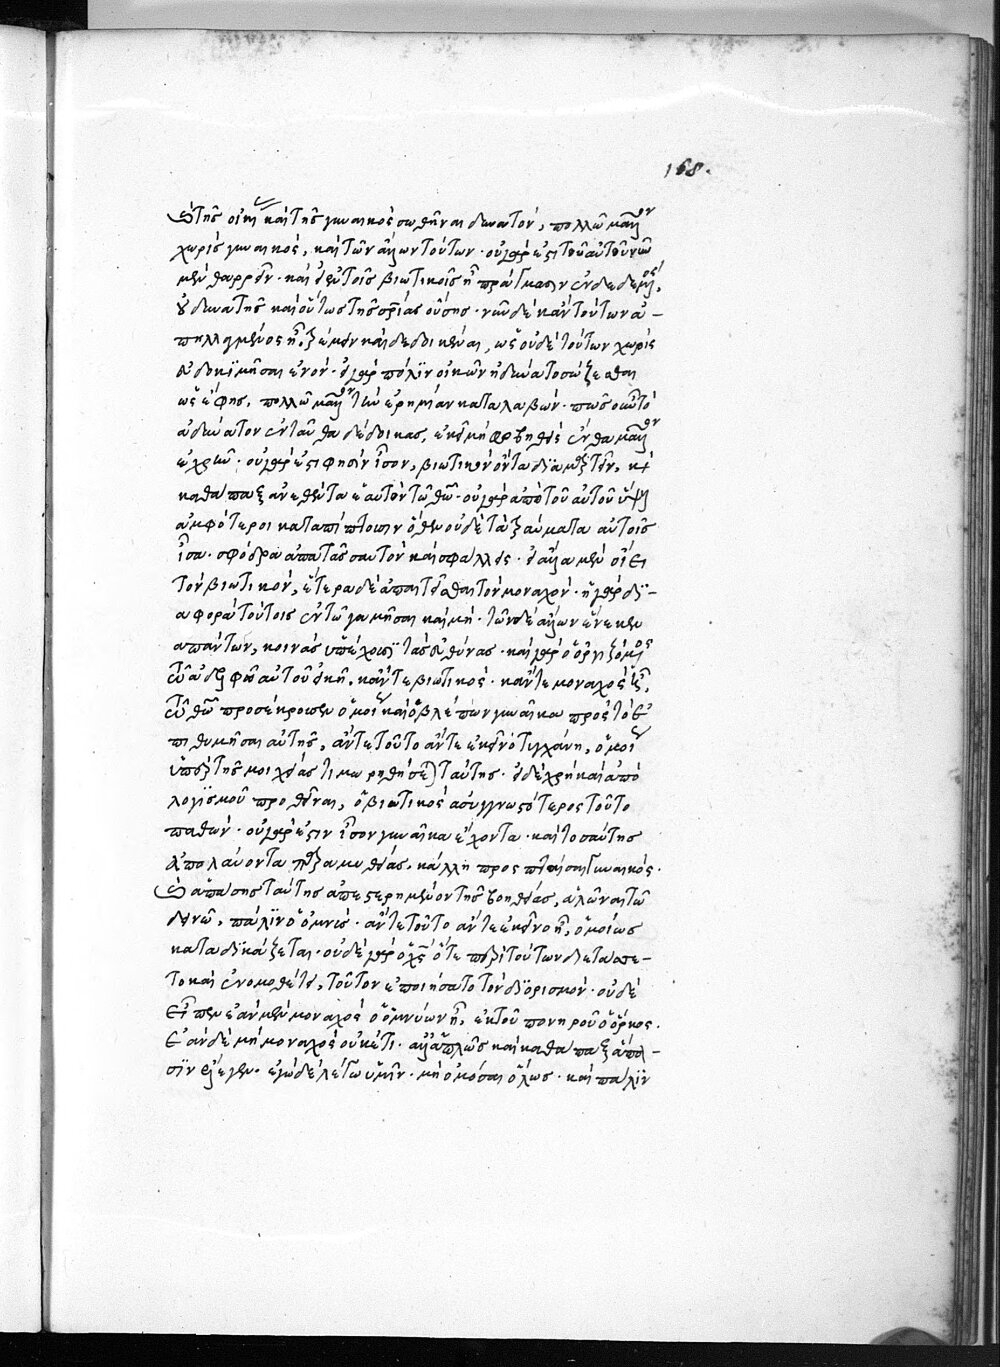 168.
ἐπὶ τῆς οἰκίας καὶ τῆς γυναικὸς σωθῆναι δυνατὸν, πολλῷ μᾶλλον
χωρὶς γυναικὸς, καὶ τῶν ἄλλων τούτων · οὐ γάρ ἐστι τοῦ αὐτοῦ νῦν
μὲν θαρρεῖν · καὶ ἐν τοῖς βιωτικοῖς ᾖ πράγμασιν ἐνδεδεμένος,
οὐ δυνατῆς καὶ οὕτως τῆς σωτηρίας οὔσης · νῦν δὲ κἂν τούτων ἀ-
πηλλαγμένος ᾖ, τρέμειν καὶ δεδοικέναι, ὡς οὐδὲ τούτων χωρὶς
εὐδοκιμῆσαι ἐνόν · εἰ γὰρ πόλιν οἰκῶν ἠδύνατο σώζεσθαι
ὡς ἔφης, πολλῷ μᾶλλον τὴν ἐρημίαν καταλαβών · πῶς οὖν τὸ
ἀδύνατον ἐνταῦθα δέδοικας, ἐκεῖ μὴ φοβηθεὶς ἔνθα μᾶλλον
ἐχρῆν · οὐ γάρ ἐστι φησὶν ἴσον, βιωτικὸν ὄντα διαμαρτεῖν, καὶ
καθάπαξ ἀνεθέντα ἑαυτὸν τῷ θεῷ · οὐ γὰρ ἀπὸ τοῦ αὐτοῦ ὕψους
ἀμφότεροι καταπίπτουσιν ὅθεν οὐδὲ τὰ τραύματα αὐτοῖς
ἴσα · σφόδρα ἀπατᾷς σαυτὸν καὶ σφάλλεις · εἰ ἄλλα μὲν οἴει
τὸν βιωτικὸν, ἕτερα δὲ ἀπαιτεῖσθαι τὸν μοναχὸν · ἡ γὰρ δι-
αφορὰ τούτοις ἐν τῷ γαμῆσαι καὶ μή · τῶν δὲ ἄλλων ἕνεκεν
ἁπάντων, κοινὰς ὑπέχουσι τὰς εὐθύνας · καὶ γὰρ ὁ ὀργιζόμενος
τῷ ἀδελφῷ αὐτοῦ εἰκῆ, κἄν τε βιωτικὸς · κἄν τε μοναχὸς ᾖ,
τῷ θεῷ προσέκρουσεν ὁμοίως καὶ ὁ βλέπων γυναῖκα πρὸς τὸ ἐ
πιθυμῆσαι αὐτῆς, ἄν τε τοῦτο ἄν τε ἐκεῖνο τυγχάνῃ, ὁμοίως
ὑπὲρ τῆς μοιχείας τιμωρηθήσεται ταύτης · εἰ δὲ χρὴ καὶ ἀπὸ
λογισμοῦ προσθεῖναι, ὁ βιωτικὸς ἀσυγγνωστότερος τοῦτο
παθών · οὐ γάρ ἐστιν ἴσον γυναῖκα ἔχοντα · καὶ τοσαύτης
ἀπολαύοντα παραμυθίας, κάλλει προσπταῖσαι γυναικός ·
καὶ ἁπάσης ταύτης ἀπεστερημένον τῆς βοηθείας, ἁλῶναι τῷ
δεινῷ, πάλιν ὁ ὀμνύς · ἄν τε τοῦτο ἄν τε ἐκεῖνο ᾖ, ὁμοίως
καταδικάζεται · οὐδὲ γὰρ ὁ χριστὸς ὅτε περὶ τούτων διετάττε-
το καὶ ἐνομοθέτει, τοῦτον ἐποιήσατο τὸν διορισμὸν · οὐδὲ
εἶπεν ἐὰν μὲν μοναχὸς ὁ ὀμνύων ᾖ, ἐκ τοῦ πονηροῦ ὁ ὅρκος ·
ἐὰν δὲ μὴ μοναχὸς οὐκέτι · ἀλλ' ἁπλῶς καὶ καθάπαξ ἅπα-
σιν ἔλεγεν · ἐγὼ δὲ λέγω ὑμῖν · μὴ ὀμόσαι ὅλως · καὶ πάλιν